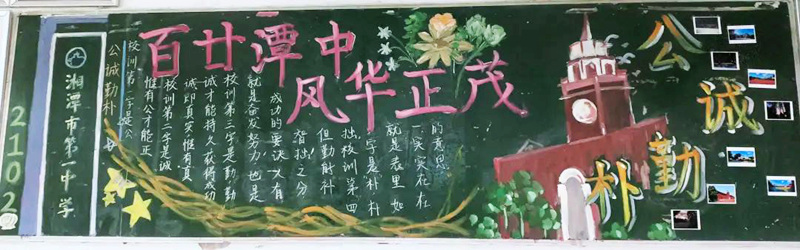 2102
湘潭市第一中学
公诚勤朴
百廿潭中
风华正茂
校训第一字是公
惟有公才能正
校训第二字是诚
诚即真实惟有真
诚才能持久获得成功
校训第三字是勤勤
就是奋发努力也是
成功的要诀大有
智拙之分
但勤能补
拙校训第四
字是朴朴
就是表里如
一实实在在
的意思
公诚勤朴